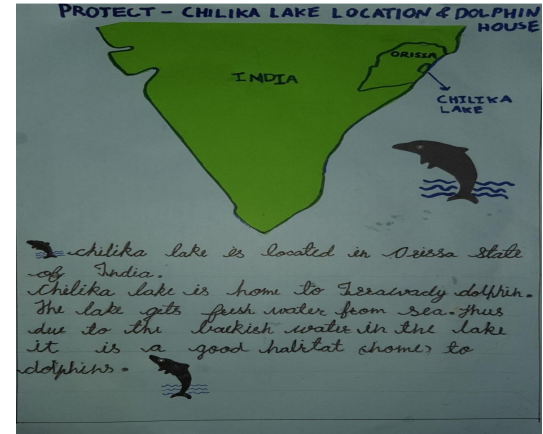 PROJECT - CHILIKA LAKE LOCATION & DOLPHIN
HOUSE
INDIA
ORISSA
CHILIKA
LAKE
chilika lake is located in Orissa state
of India.
Chilika lake is home to Irrawady dolphin.
The lake gets fresh water from sea. Thus
due to the backish water in the lake
it is a good habitat (home) to
dolphins.